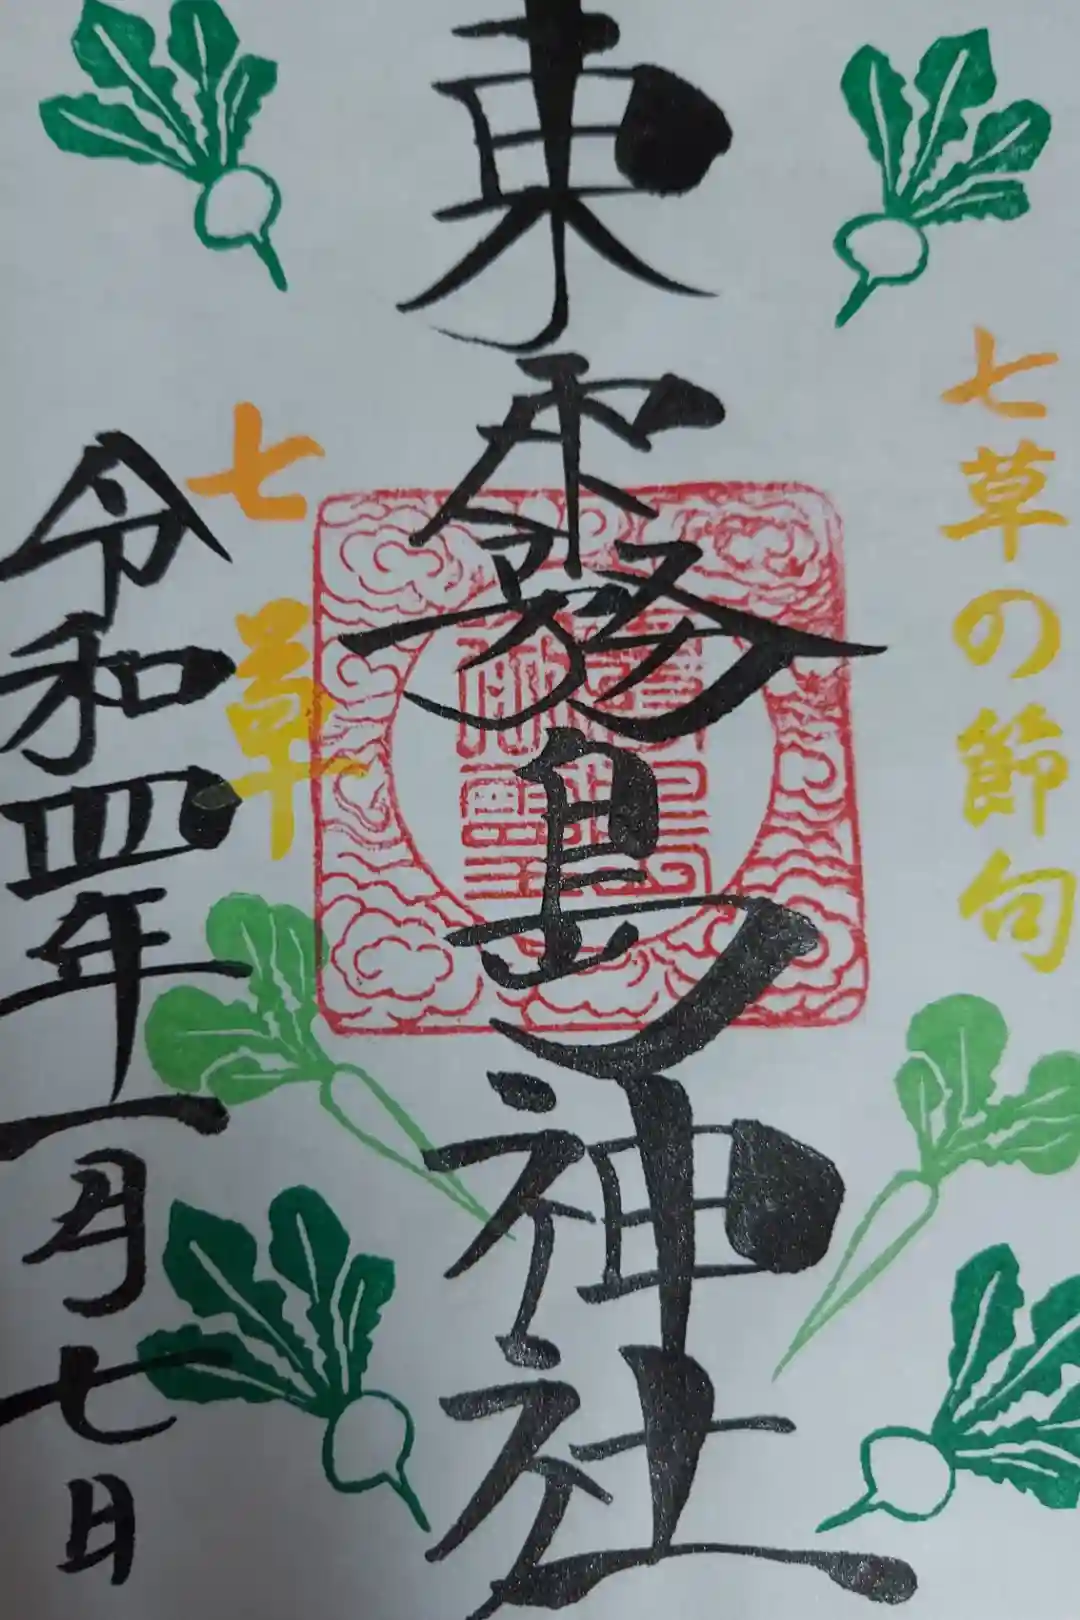 七草の節句
東霧島神社
七草
令和四年一月七日